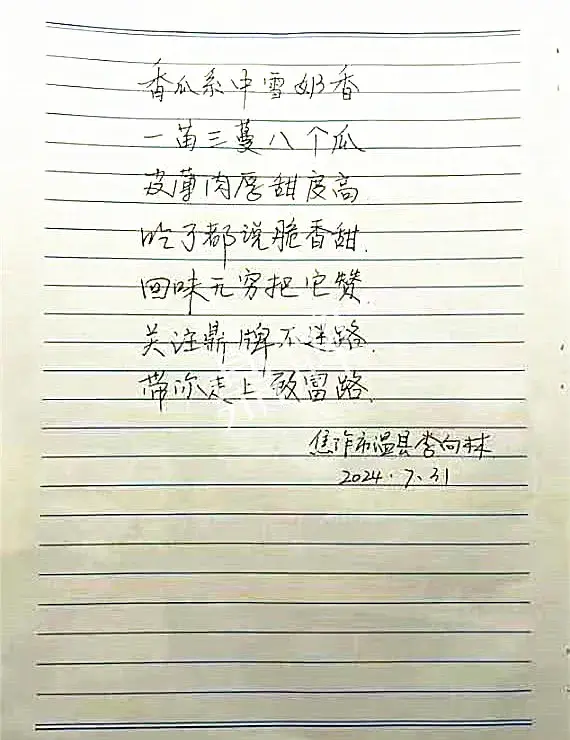 香瓜系中雪奶香
一苗三蔓八个瓜
皮薄肉厚甜度高
吃了都说脆香甜.
回味无穷把它赞.
关注鼎牌不迷路.
带你走上致富路.
焦作市温县李向林
2024.7.31